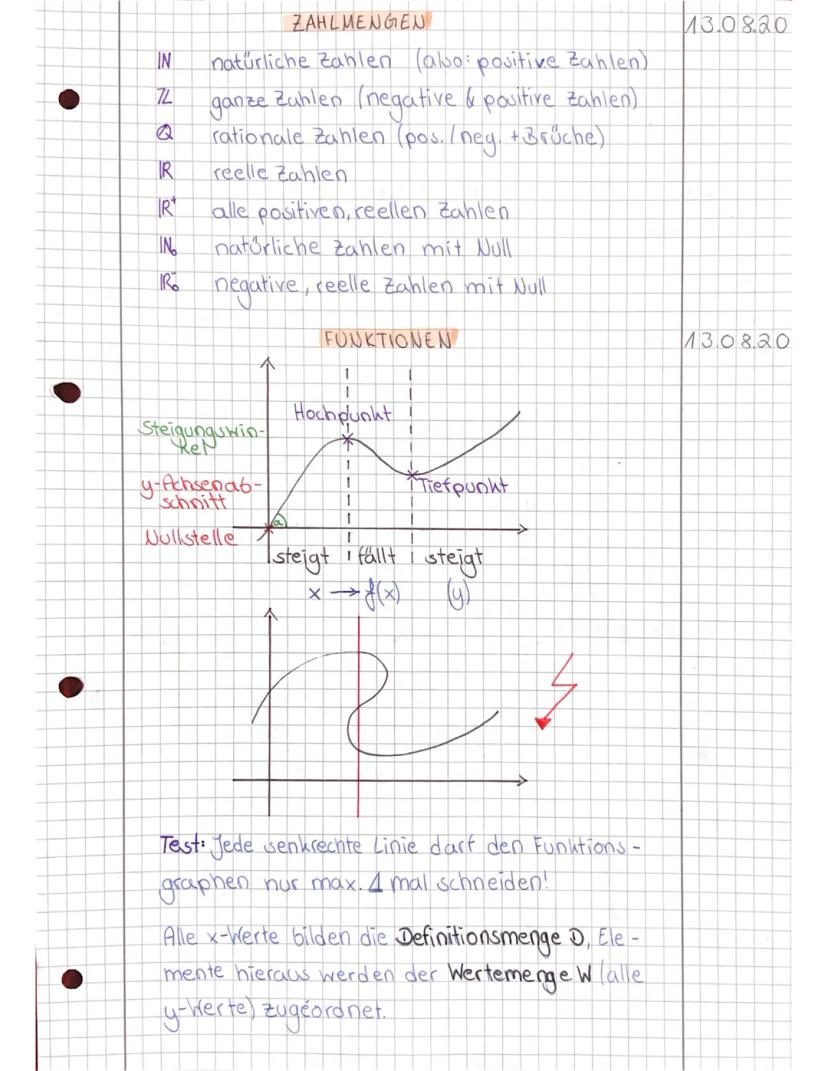 ZAHLMENGEN 13.08.20
ℕ natürliche Zahlen (also: positive Zahlen)
ℤ ganze Zahlen (negative & positive Zahlen)
ℚ rationale Zahlen (pos./neg. + Brüche)
ℝ reelle Zahlen
ℝ⁺ alle positiven, reellen Zahlen
ℕ₀ natürliche Zahlen mit Null
ℝ₀⁻ negative, reelle Zahlen mit Null
FUNKTIONEN 13.08.20
Hochpunkt
Steigungswin-
kel
y-Achsenab-
schnitt
Tiefpunkt
α
Nullstelle
steigt fällt steigt
x → f(x) (y)
Test: Jede senkrechte Linie darf den Funktions-
graphen nur max. 1 mal schneiden!
Alle x-Werte bilden die Definitionsmenge D, Ele-
mente hieraus werden der Wertemenge W (alle
y-Werte) zugeordnet.